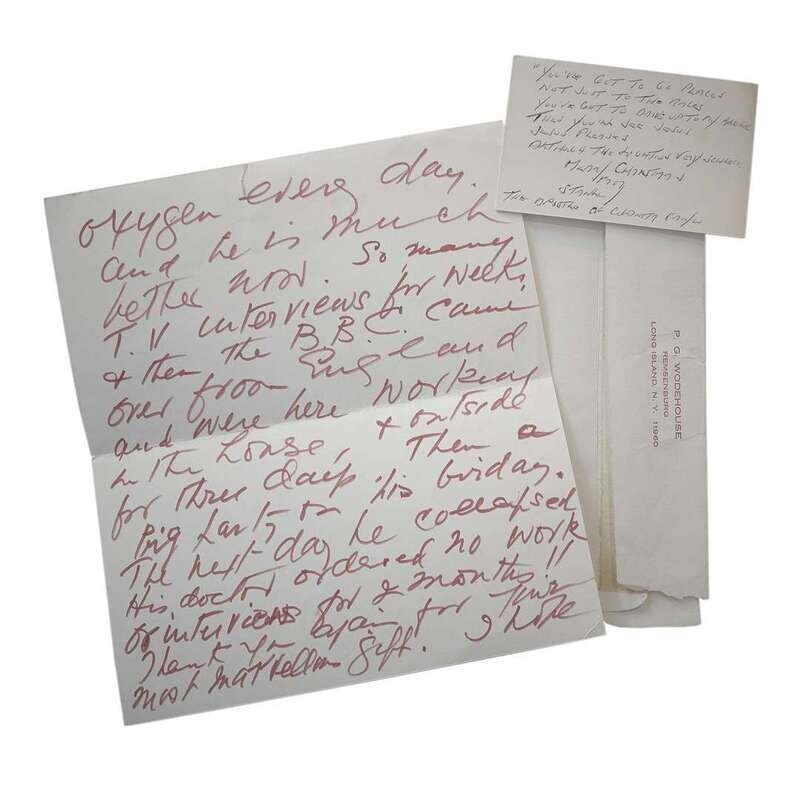 oxygen every day.
and he is much
better now. So many
T.V interviews for weeks,
& then the B.B.C. came
over from England
and were here working
in the house, & outside
for three days. Then a
Big Party on his birday.
The next day he collapsed
His doctor ordered no work
or interviews for 2 months!!
Thank you again for
most marvellous gift. I hope
"YOU'VE GOT TO GO PLACES
NOT JUST TO THE RACES
YOU'VE GOT TO
THEN YOU'LL SEE JESUS
JESUS PLEASES
THE
MERRY CHRISTMAS
STANLEY
THE APOSTLE OF
P. G. WODEHOUSE
REMSENBURG
LONG ISLAND, N. Y. 11960